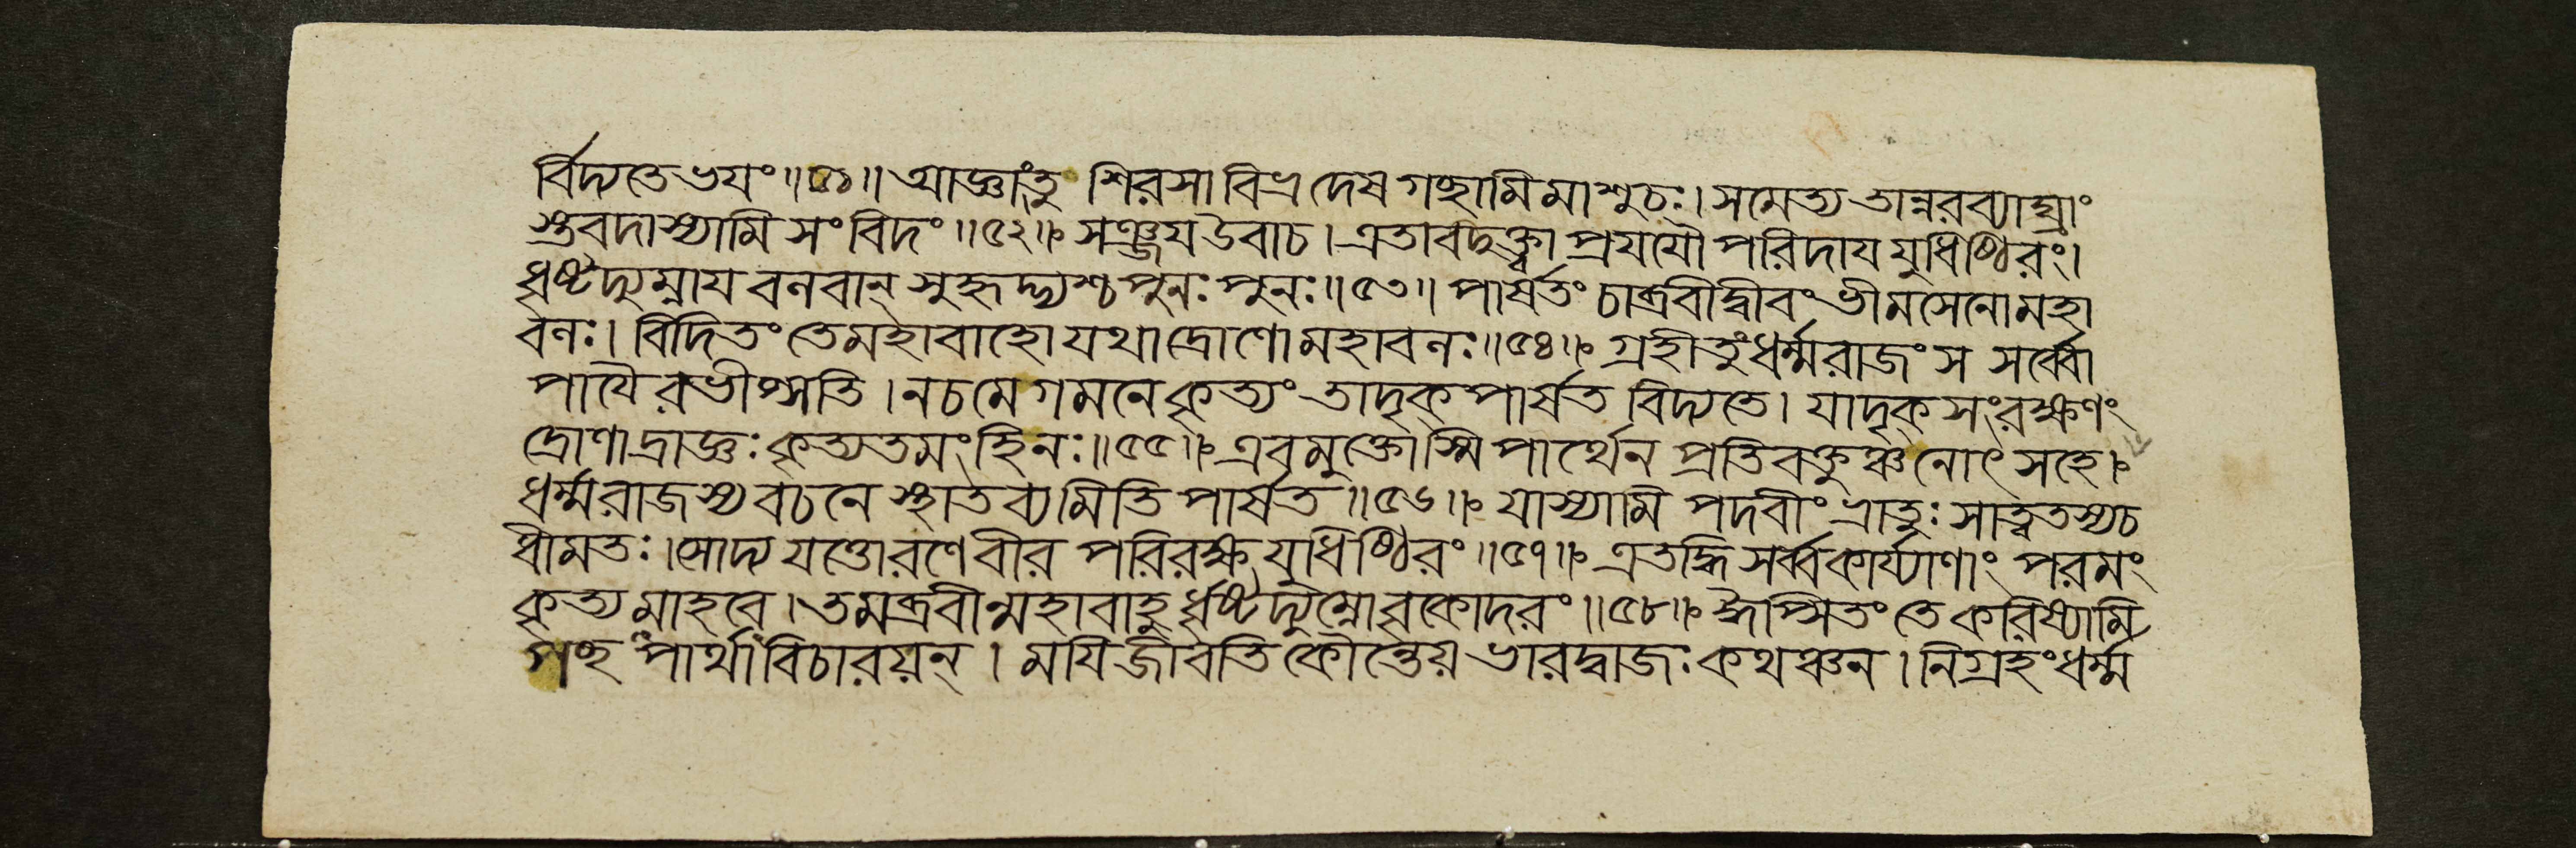 র্বিদ্যতেভযং॥৫১॥আজ্ঞাংতু শিরসা বিভ্রদেষ গচ্ছামিমাশুচঃ।সমেত্য তান্নরব্যাঘ্রাং
স্তবদাস্যামি সংবিদং॥৫২॥ সঞ্জয উবাচ।এতাবদুক্ত্বা প্রযযৌ পরিদায যুধিষ্ঠিরং।
ধৃষ্টদ্যুম্নায বলবান্ সুহৃদ্ভ্যশ্চ পুনঃ পুনঃ॥৫৩॥পার্ষতং চাব্রবীদ্বীবং ভীমসেনোমহা
বলঃ।বিদিতং তেমহাবাহো যথাদ্রোণোমহাবলঃ॥৫৪॥ গ্রহীতুংধর্ম্মরাজং স সর্ব্বো
পাযৈরভীপ্সতি।নচমে গমনেকৃত্যং তাদৃক্ পার্ষত বিদ্যতে। যাদৃক্ সংরক্ষণং
দ্রোণাদ্রাজ্ঞঃ কৃত্যতমংহিনঃ॥৫৫॥ এবমুক্তোস্মিপার্থেন প্রতিবক্তুঞ্চনোৎসহে।
ধর্ম্মরাজস্যবচনে স্থাতব্যমিতি পার্ষত॥৫৬॥ যাস্যামি পদবীং ভ্রাতুঃ সাত্বতস্যচ
ধীমতঃ।সোদ্য যত্তোরণেবীর পরিরক্ষ যুধিষ্ঠিরং॥৫৭॥ এতদ্ধি সর্ব্বকার্য্যাণাং পরমং
কৃত্যমাহবে।তমব্রবীন্মহাবাহুর্ধৃষ্টদ্যুম্নোবৃকোদরং॥৫৮॥ ঈপ্সিতং তেকরিষ্যামি
গচ্ছ পার্থাবিচারয়ন্।মযিজীবতিকৌন্তেয় ভারদ্বাজঃকথঞ্চন।নিগ্রহংধর্ম্ম